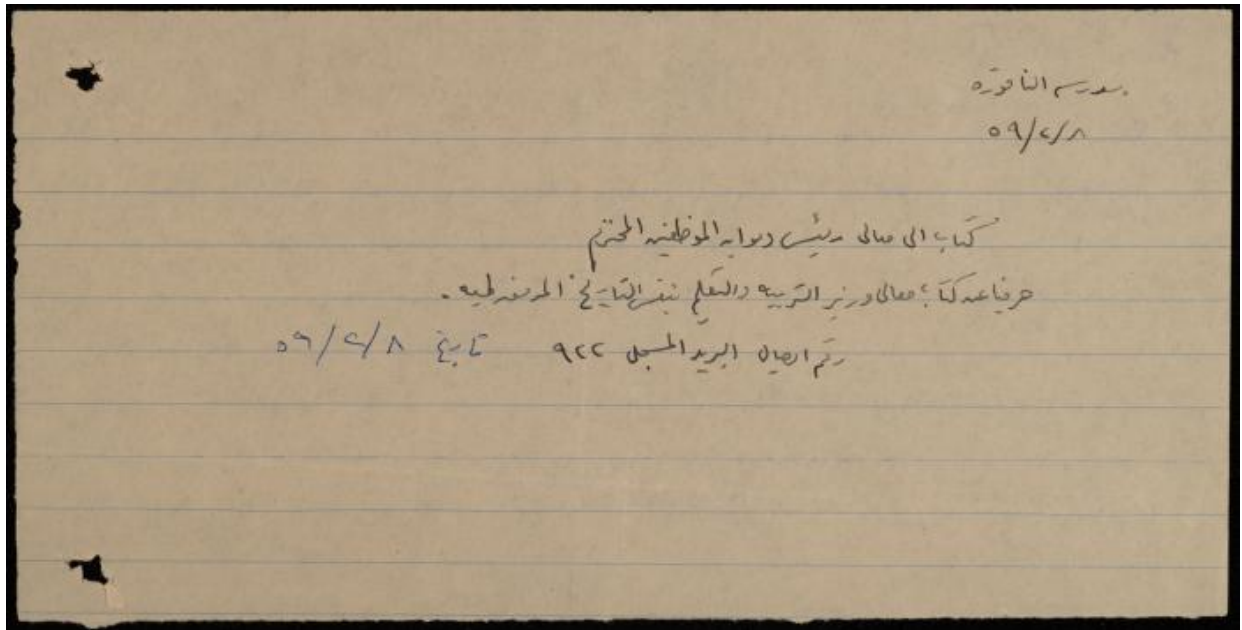 مدرسة الناقورة
٥٩/٢/٨
كتاب الى معالي رئيس ديوان الموظفين المحترم
حرفيا عن كتاب معالي وزير التربيه والتعليم بنفس التاريخ
رقم ايصال البريد المسجل ٩٢٢ تاريخ ٥٩/٢/٨